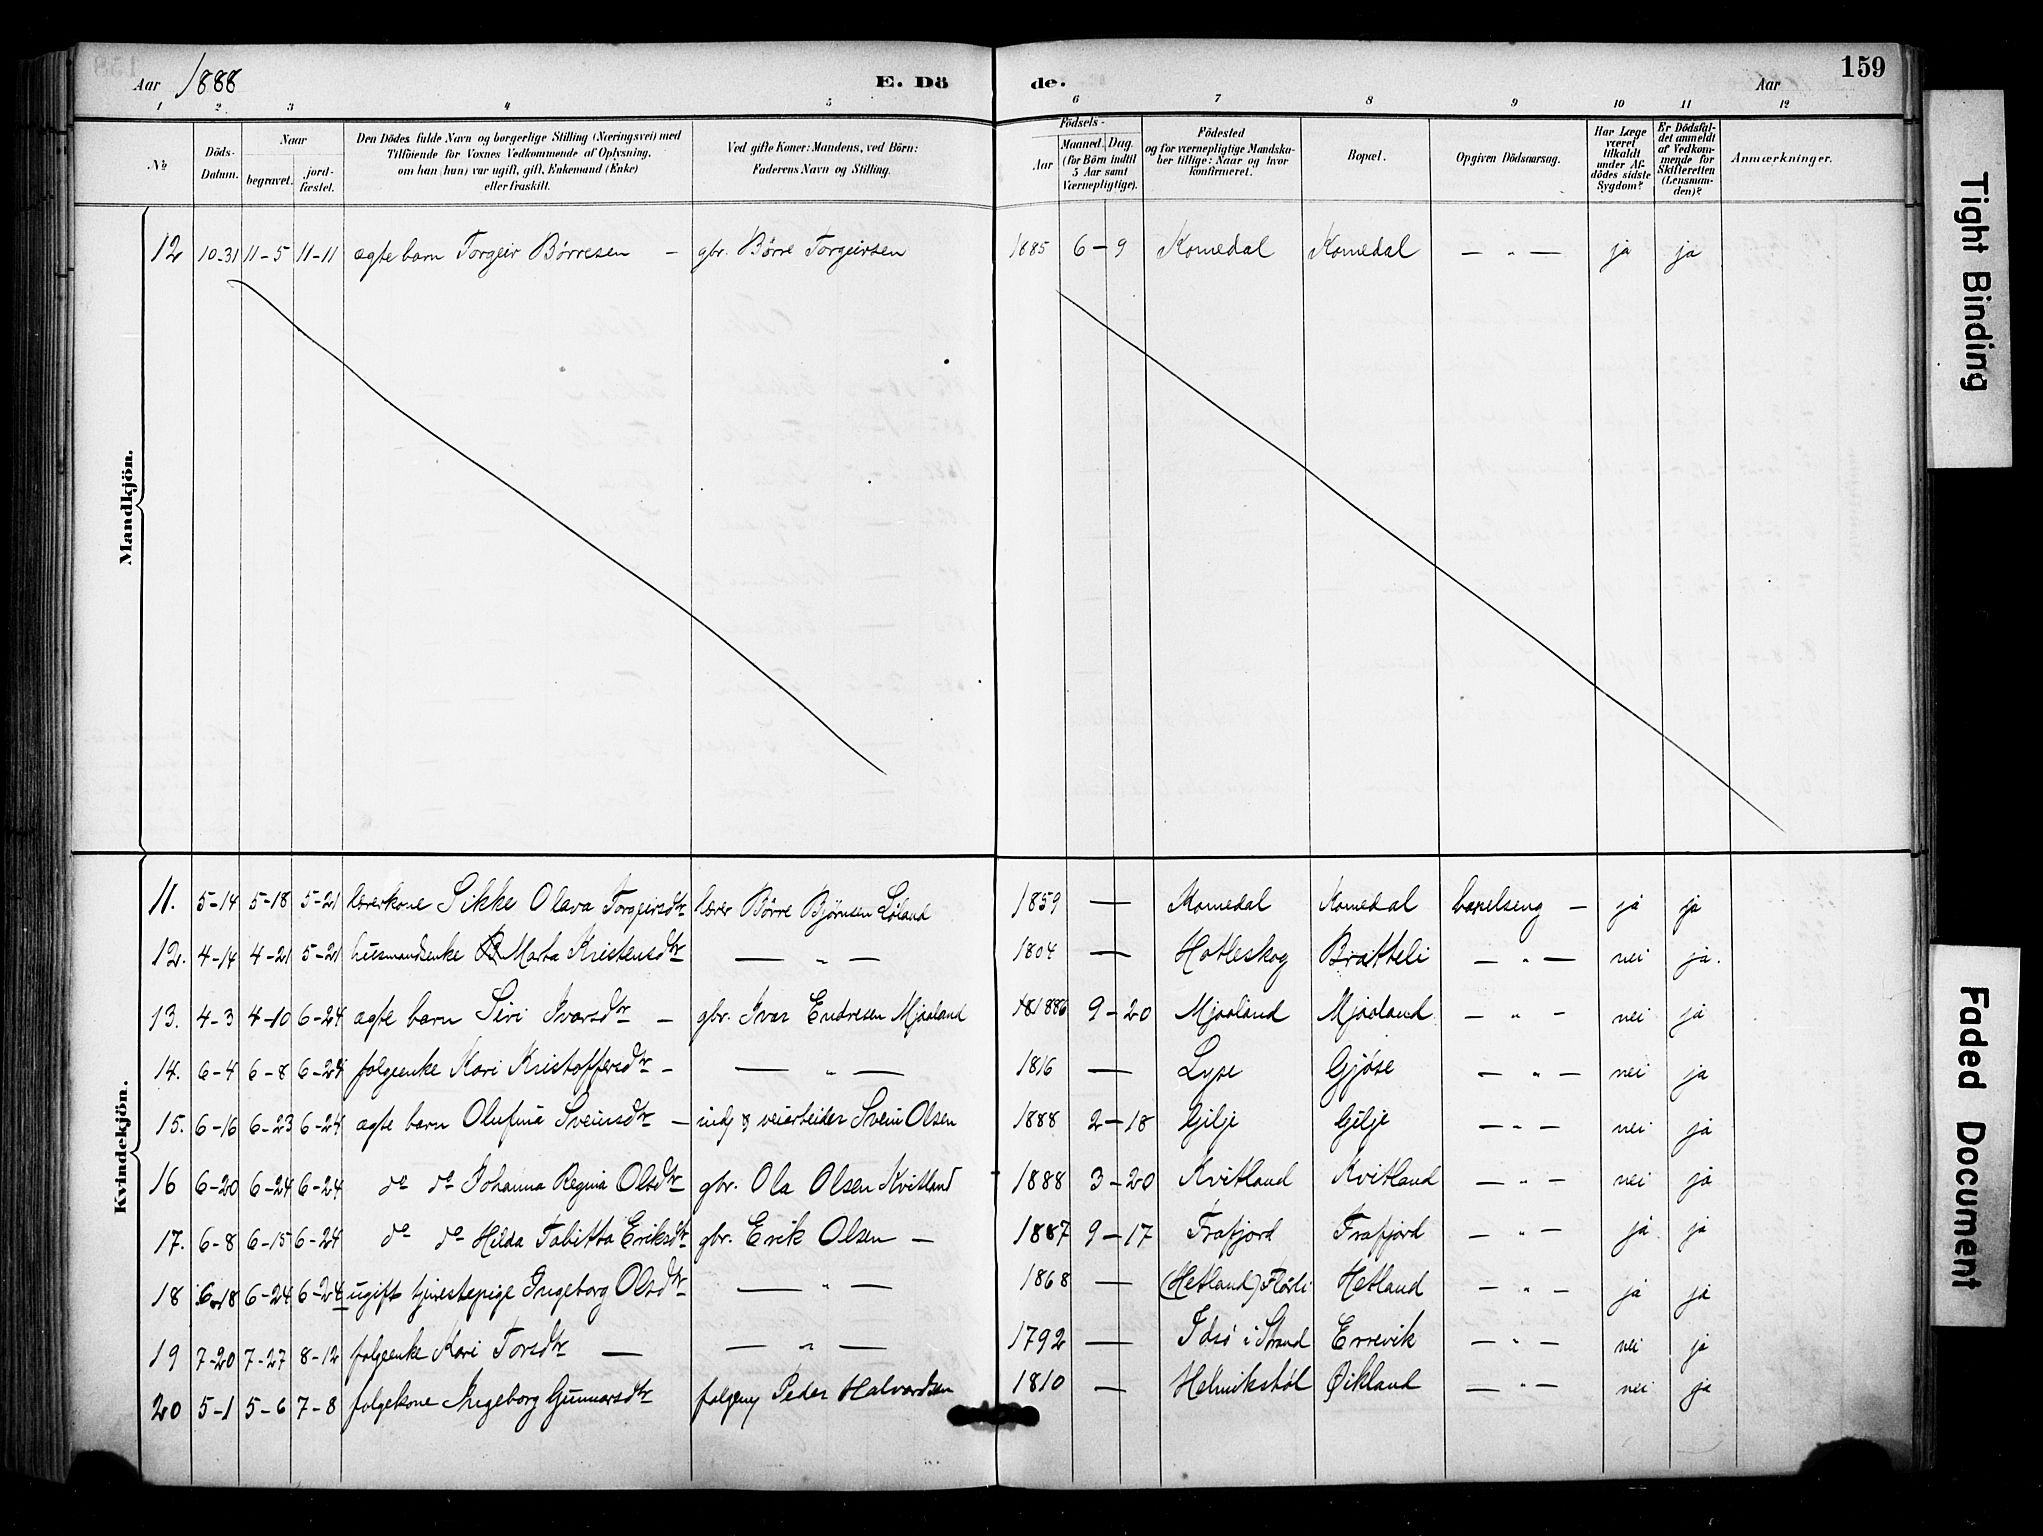 Aar 1888 E. Döde. Aar 159
1 2 3 4 5 6 7 8 9 10 11 12
No.
Döds-Datum.
Naar
begravet.
jord-fæstet.
Den Dödes fulde Navn og borgerlige Stilling (Næringsvei) med
Tilföiende for Voxnes Vedkommende af Oplysning,
om han (hun) var ugift, gift, Enkemand (Enke)
eller fraskilt.
Ved gifte Koner: Mandens, ved Börn:
Faderens Navn og Stilling.
Födsels-
Aar
Maaned. Dag.
(for Börn indtil
5 Aar samt
Værnepligtige).
Födested
og for værnepligtige Mandska-
ber tillige: Naar og hvor
konfirmeret.
Bopæl.
Opgiven Dödsaarsag.
Har Læge
været
tilkaldt
under Af-
dödes sidste
Sygdom?
Er Dödsfal-
det anmeldt
af Vedkom-
mende for
Skifteretten
(Lensman-
den)?
Anmærkninger.
Mandkjön.
12 10-31 11-5 11-11 ægte barn Torgeir Børresen — gbr. Børre Torgeirsen 1885 6-9 Komedal Komedal — " — ja ja
Kvindekjön.
11. 5-14 5-18 5-21 lærerkone Sikke Olava Torgeirsdtr lærer Børre Bjørnsen Løland 1859 — Komedal Komedal barselseng — ja ja
12. 4-14 4-21 5-21 husmandsenke Marta Kristensdtr — " — 1804 — Hotleskog Bratteli — " — nei ja.
13. 4-3 4-10 6-24 ægte barn Siri Ivarsdtr — gbr. Ivar Endresen Mjaaland 1886 9-20 Mjaaland Mjaaland — " — nei ja
14. 6-4 6-8 6-24 folgeenke Kari Kristoffersdtr — — " — 1816 — Lyse Gjøse — " — nei ja
15. 6-16 6-23 6-24 ægte barn Olufina Sveinsdtr — indj & veiarbeider Svein Olsen 1888 2-18 Gilje Gilje — " — nei ja
16 6-20 6-24 6-24 do do Johanna Regina Olsdtr gbr. Ola Olsen Kvitland 1888 3-20 Kvitland Kvitland — " — nei ja
17. 6-8 6-15 6-24 do do Hilda Tabitta Eriksdtr gbr. Erik Olsen — 1887 9-17 Frafjord Frafjord — " — ja ja
18 6-18 6-24 6-24 ugift tjenestepige Ingeborg Olsdtr — " — 1868 — (Hetland) Flørli Hetland — " — ja ja
19 7-20 7-27 8-12 folgeenke Kari Torsdtr — — " — 1792 — Idsø i Strand Errevik — " — nei ja
20 5-1 5-6 7-8 folgekone Ingeborg Gunnarsdtr folgem Peder Halvardsen 1810 — Helmikstøl Øikland — " — nei ja
Tight Binding
Faded Document